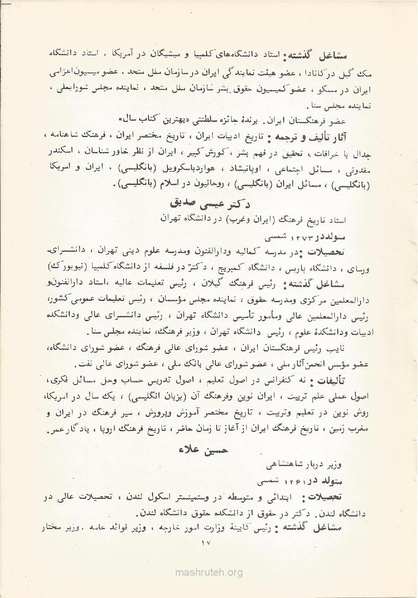 مشاغل گذشته: استاد دانشگاه‌های کلمبیا و میشیگان در آمریکا . استاد دانشگاه
مک گیل در کانادا ، عضو هیئت نمایندگی ایران در سازمان ملل متحد . عضو میسیون اعزامی
ایران در مسکو ، عضو کمیسیون حقوق بشر سازمان ملل متحد ، نماینده مجلس شورایملی ،
نماینده مجلس سنا.
عضو فرهنگستان ایران. برندهٔ جائزه سلطنتی «بهترین کتاب سال»
آثار تألیف و ترجمه: تاریخ ادبیات ایران ، تاریخ مختصر ایران ، فرهنگ شاهنامه ،
جدال با خرافات ، تحقیق در فهم بشر ، کورش کبیر ، ایران از نظر خاورشناسان ، اسکندر
مقدونی ، مسائل اجتماعی ، اوپانیشاد ، هواردباسکرویل (بانگلیسی) ، ایران و امریکا
(بانگلیسی) ، مسائل ایران (بانگلیسی) ، روحانیون در اسلام (بانگلیسی).
دکتر عیسی صدیق
استاد تاریخ فرهنگ (ایران وغرب) در دانشگاه تهران
متولد در ۱۲۷۳ شمسی
تحصیلات: در مدرسه کمالیه ودارالفنون ومدرسه علوم دینی تهران ، دانشسرای
ورسای ، دانشگاه پاریس ، دانشگاه کمبریج ، دکتر در فلسفه از دانشگاه کلمبیا (نیویورک)
مشاغل گذشته: رئیس فرهنگ گیلان ، رئیس تعلیمات عالیه ، استاد دارالفنون و
دارالمعلمین مرکزی ومدرسه حقوق ، نماینده مجلس مؤسسان ، رئیس تعلیمات عمومی کشور،
رئیس دارالمعلمین عالی ومأمور تأسیس دانشگاه تهران ، رئیس دانشسرای عالی ودانشکده
ادبیات ودانشکدهٔ علوم ، رئیس دانشگاه تهران ، وزیر فرهنگ، نماینده مجلس سنا.
نایب رئیس فرهنگستان ایران ، عضو شورای عالی فرهنگ ، عضو شورای دانشگاه،
عضو مؤسس انجمن آثار ملی ، عضو شورای عالی بانک ملی ، عضو شورای عالی نفت.
تألیفات: نه کنفرانس در اصول تعلیم ، اصول تدریس حساب وحل مسائل فکری،
اصول عملی علم تربیت ، ایران نوین وفرهنگ آن (بزبان انگلیسی) ، یک سال در امریکا،
روش نوین در تعلیم وتربیت ، تاریخ مختصر آموزش وپرورش ، سیر فرهنگ در ایران و
مغرب زمین ، تاریخ فرهنگ ایران از آغاز تا زمان حاضر ، تاریخ فرهنگ اروپا ، یادگار عمر.
حسین علاء
وزیر دربار شاهنشاهی
متولد در ۱۲۶۱ شمسی
تحصیلات: ابتدائی و متوسطه در وستمینستر اسکول لندن ، تحصیلات عالی در
دانشگاه لندن. دکتر در حقوق از دانشکده حقوق دانشگاه لندن.
مشاغل گذشته: رئیس کابینهٔ وزارت امور خارجه ، وزیر فوائد عامه . وزیر مختار
۱۷
mashruteh.org